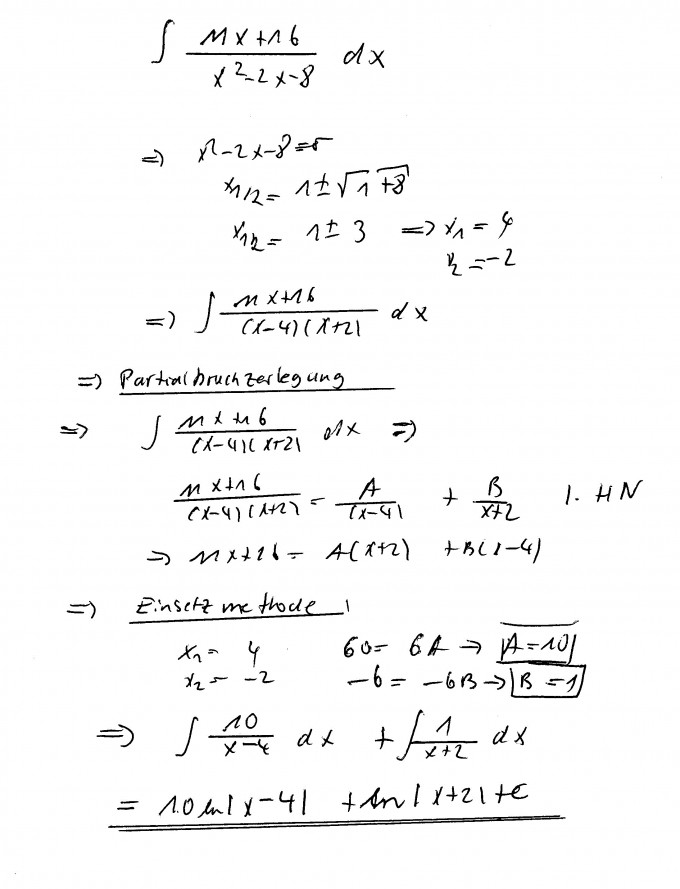 ∫ (11x+16)/(x²-2x-8) dx
=> x²-2x-8=0
x1/2= 1±√1+8
x1/2= 1±3 => x1=4
x2=-2
=> ∫ (11x+16)/((x-4)(x+2)) dx
=> Partialbruchzerlegung
=> ∫ (11x+16)/((x-4)(x+2)) dx =>
(11x+16)/((x-4)(x+2)) = A/(x-4) + B/(x+2) |. HN
=> 11x+16= A(x+2) +B(x-4)
=> Einsetzmethode |
x1= 4 60= 6A → A=10
x2= -2 -6= -6B → B=1
=> ∫ 10/(x-4) dx + ∫ 1/(x+2) dx
= 10 ln|x-4| + ln|x+2|+C